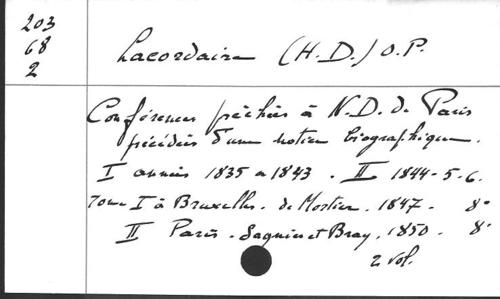 203
68
2
Lacordaire (H.D.) O.P.
Conférences prêchées à N.D. de Paris
précédées d'une notice biographique.
I années 1835 à 1843. II 1844-5-6.
Tome I à Bruxelles. de Mortier. 1847. 8°
II Paris. Sagnier et Bray. 1850. 8°
2 vol.